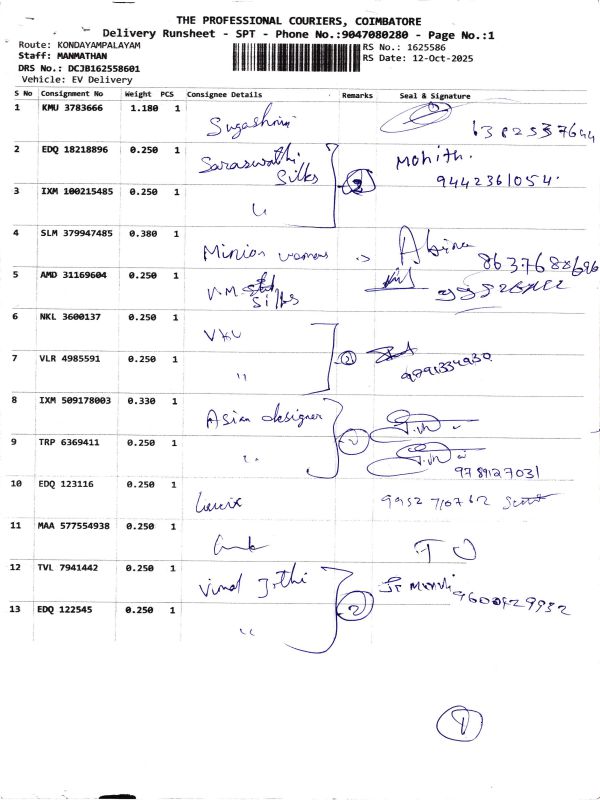 THE PROFESSIONAL COURIERS, COIMBATORE
Delivery Runsheet - SPT - Phone No.:9047080280 - Page No.:1
Route: KONDAYAMPALAYAM
RS No.: 1625586
Staff: MANMATHAN
RS Date: 12-Oct-2025
DRS No.: DCJB162558601
Vehicle: EV Delivery
S No Consignment No Weight PCS Consignee Details Remarks Seal & Signature
1 KMU 3783666 1.180 1
2 EDQ 18218896 0.250 1 Saraswathi Silks 2 Mohith. 9442361054.
3 IXM 100215485 0.250 1
4 SLM 379947485 0.380 1 8637688696
5 AMD 31169604 0.250 1 V.M Silks
6 NKL 3600137 0.250 1 VKV
7 VLR 4985591 0.250 1 " 2 9791334930
8 IXM 509178003 0.330 1 Asian designer
9 TRP 6369411 0.250 1 " 9789127031
10 EDQ 123116 0.250 1 9952710762
11 MAA 577554938 0.250 1
12 TVL 7941442 0.250 1 Vimal 2
13 EDQ 122545 0.250 1 "